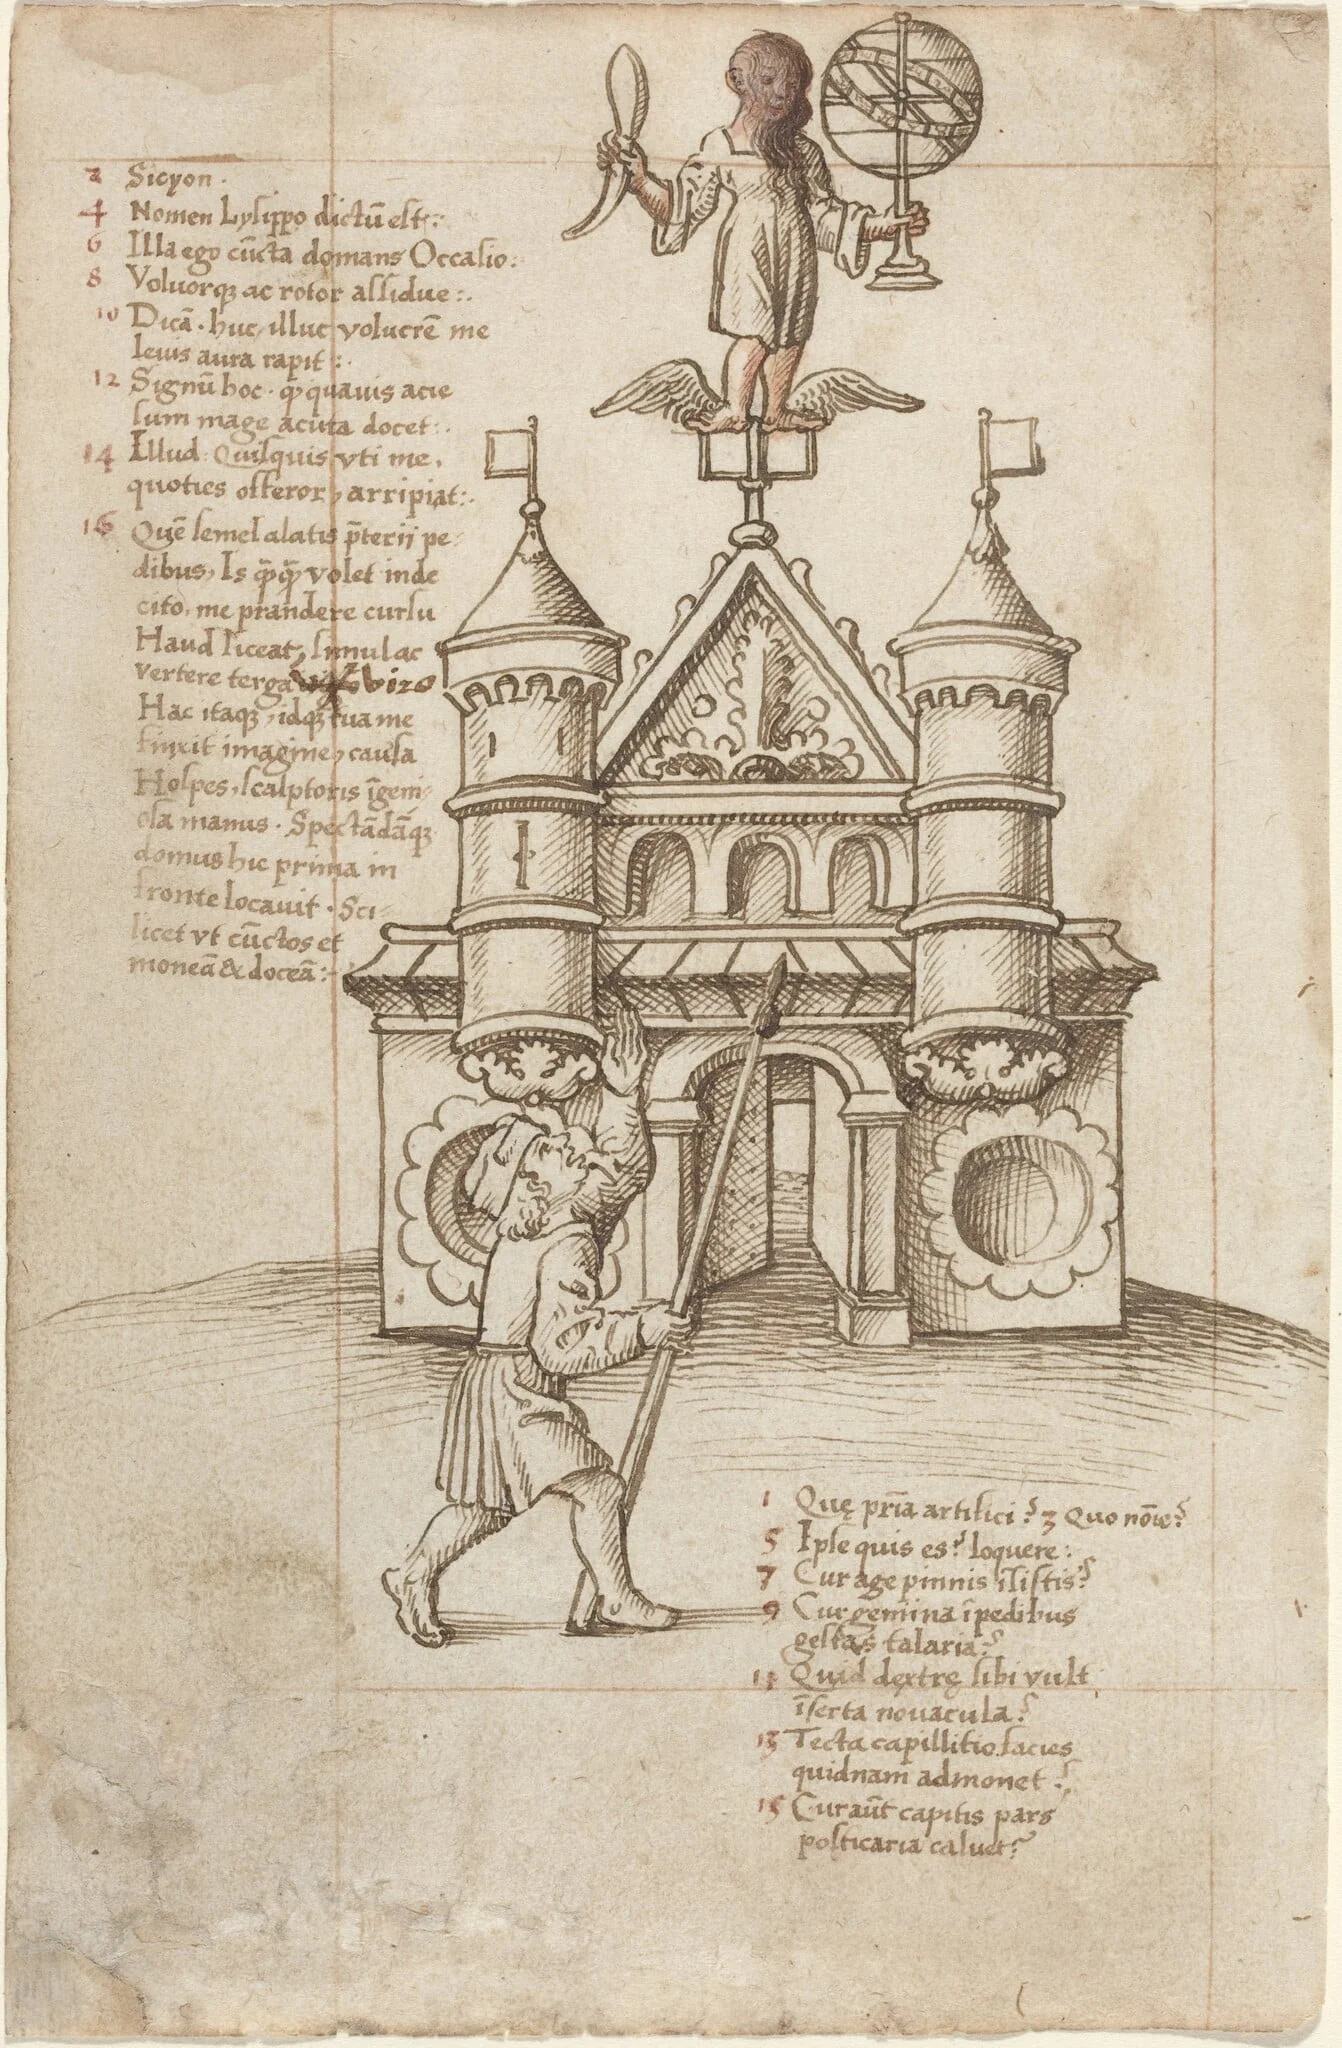 2 Sicyon.
4 Nomen Lysippo dictū est:.
6 Illa ego cūcta domans Occasio:.
8 Voluorq; ac rotor assidue:.
10 Dicā. huc, illuc volucrē me
leuis aura rapit:.
12 Signū hoc. ꝙ quauis acie
sum mage acuta docet:.
14 Illud. Quisquis vti me,
quoties offeror, arripiat:.
16 Quē semel alatis p̄terij pe-
dibus, Is volet inde
cito, me prandere cursu
Haud liceat, simulac
vertere terga viro
Hac itaq;, idq; tua me
finxit imagine, causa
Hospes, scalptoris īgeni-
osa manus. Spectādāq;
domus hic prima in
fronte locauit. Sci-
licet vt cūctos et
moneā & doceā:-
1 Quę pria artifici? 3 Quo nōie?
5 Ipse quis es? loquere:
7 Cur age pinnis īsistis?
9 Cur gemina ī pedibus
gestas talaria?
11 Quid dextrę sibi vult
īserta nouacula?
13 Tecta capillitio facies
quidnam admonet?
15 Cur aūt capitis pars
posticaria caluet?